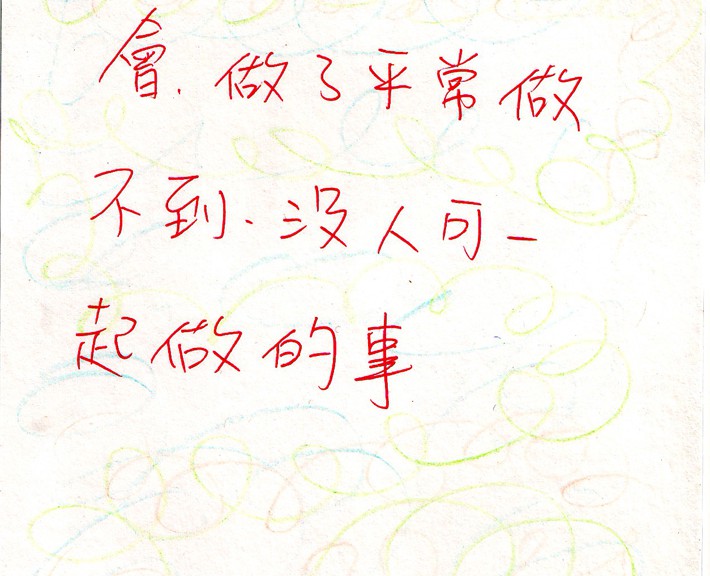 會、做了平常做
不到、沒人可一
起做的事